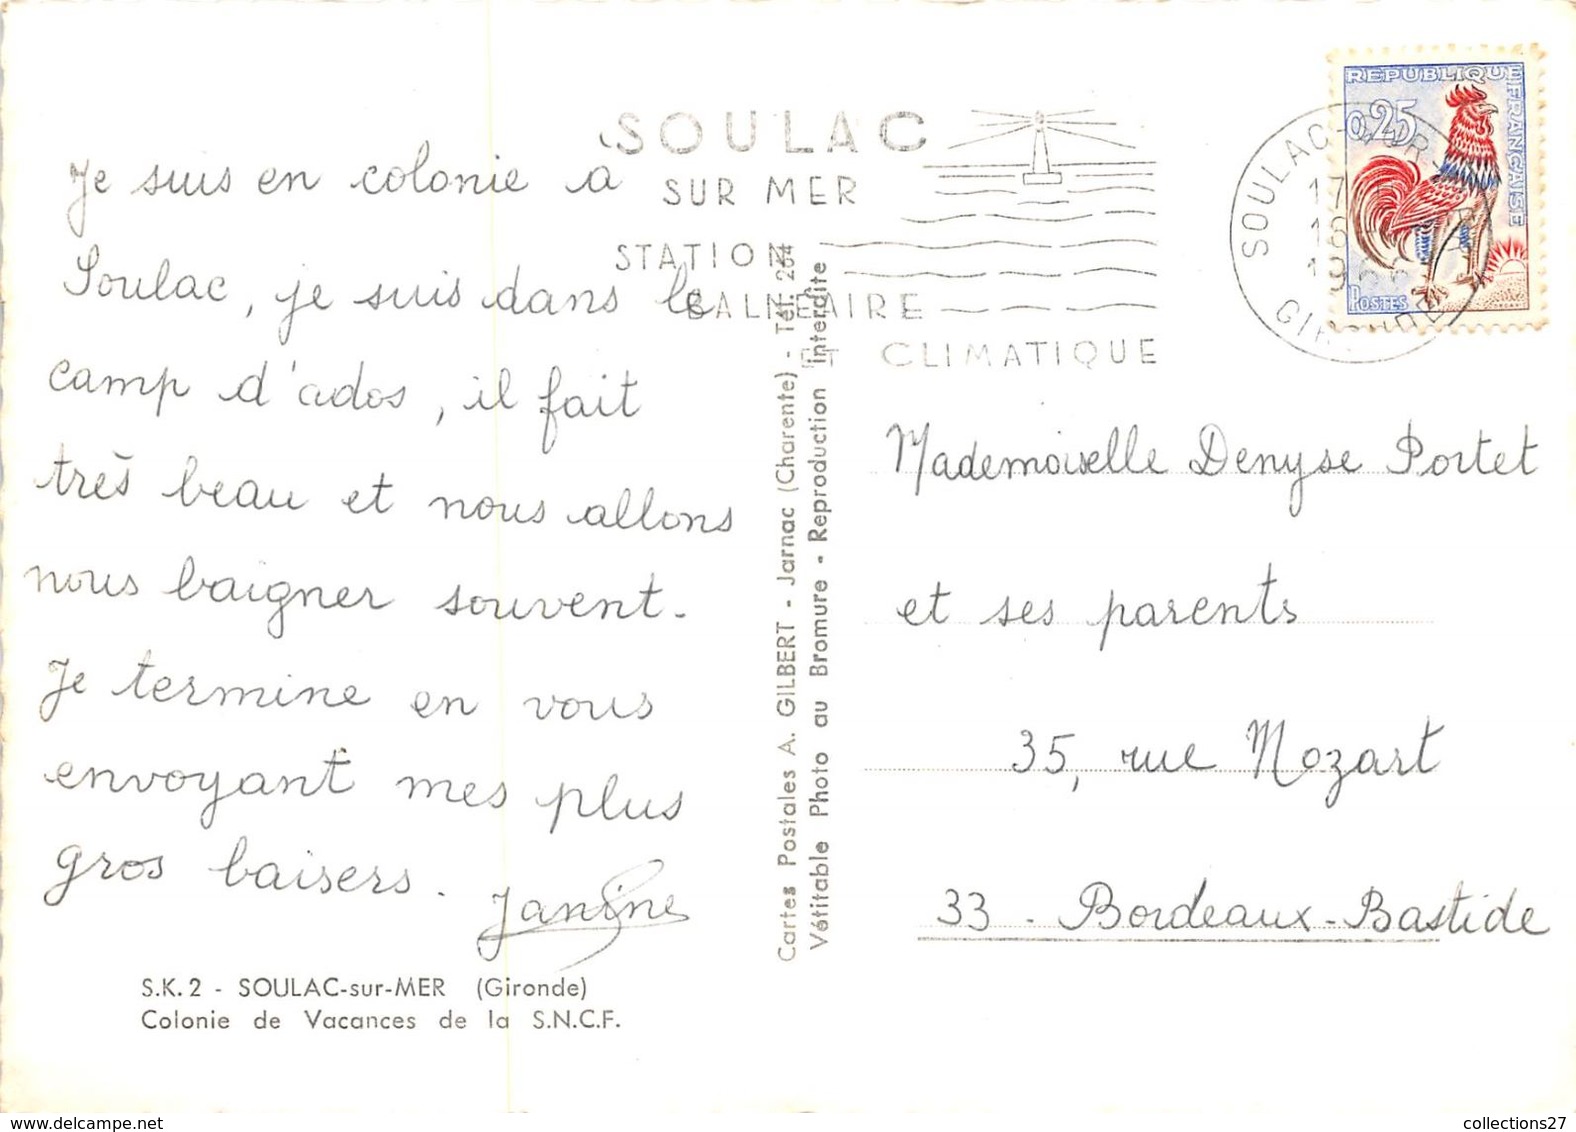 Je suis en colonie a
Soulac, je suis dans le
camp d'ados, il fait
très beau et nous allons
nous baigner souvent.
Je termine en vous
envoyant mes plus
gros baisers.
Janine
S.K. 2 - SOULAC-sur-MER (Gironde)
Colonie de Vacances de la S.N.C.F.
Cartes Postales A. GILBERT - Jarnac (Charente) - Tél. 264
Vétitable Photo au Bromure - Reproduction interdite
SOULAC
SUR MER
STATION
BALNEAIRE
ET CLIMATIQUE
SOULAC-SUR-MER
GIRONDE
REPUBLIQUE FRANÇAISE
0,25
POSTES
Mademoiselle Denyse Portet
et ses parents
35, rue Mozart
33 - Bordeaux-Bastide
collections27